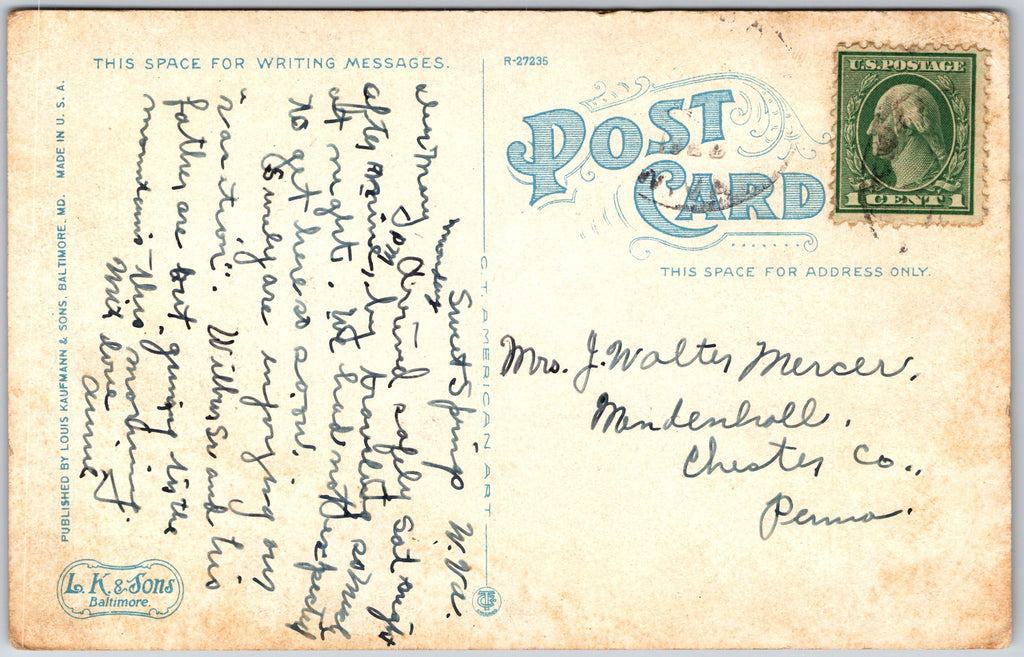 THIS SPACE FOR WRITING MESSAGES.
R-27235
U.S. POSTAGE
1 CENT 1
POST CARD
THIS SPACE FOR ADDRESS ONLY.
Sweet Springs W. Va.
Monday
Dear Mary
Tom Arrived safely Sat night
after nine, by traveling some
at night. We had not expected
to get here so soon.
Surely are enjoying our
"vacation". Wilbur Sr and his
father are out gunning in the
mountains – this morning.
With love
Annie
Mrs. J. Walter Mercer,
Mendenhall,
Chester Co.,
Penna.
C.T. AMERICAN ART
PUBLISHED BY LOUIS KAUFMANN & SONS, BALTIMORE, MD. MADE IN U. S. A.
L. K. & Sons
Baltimore.